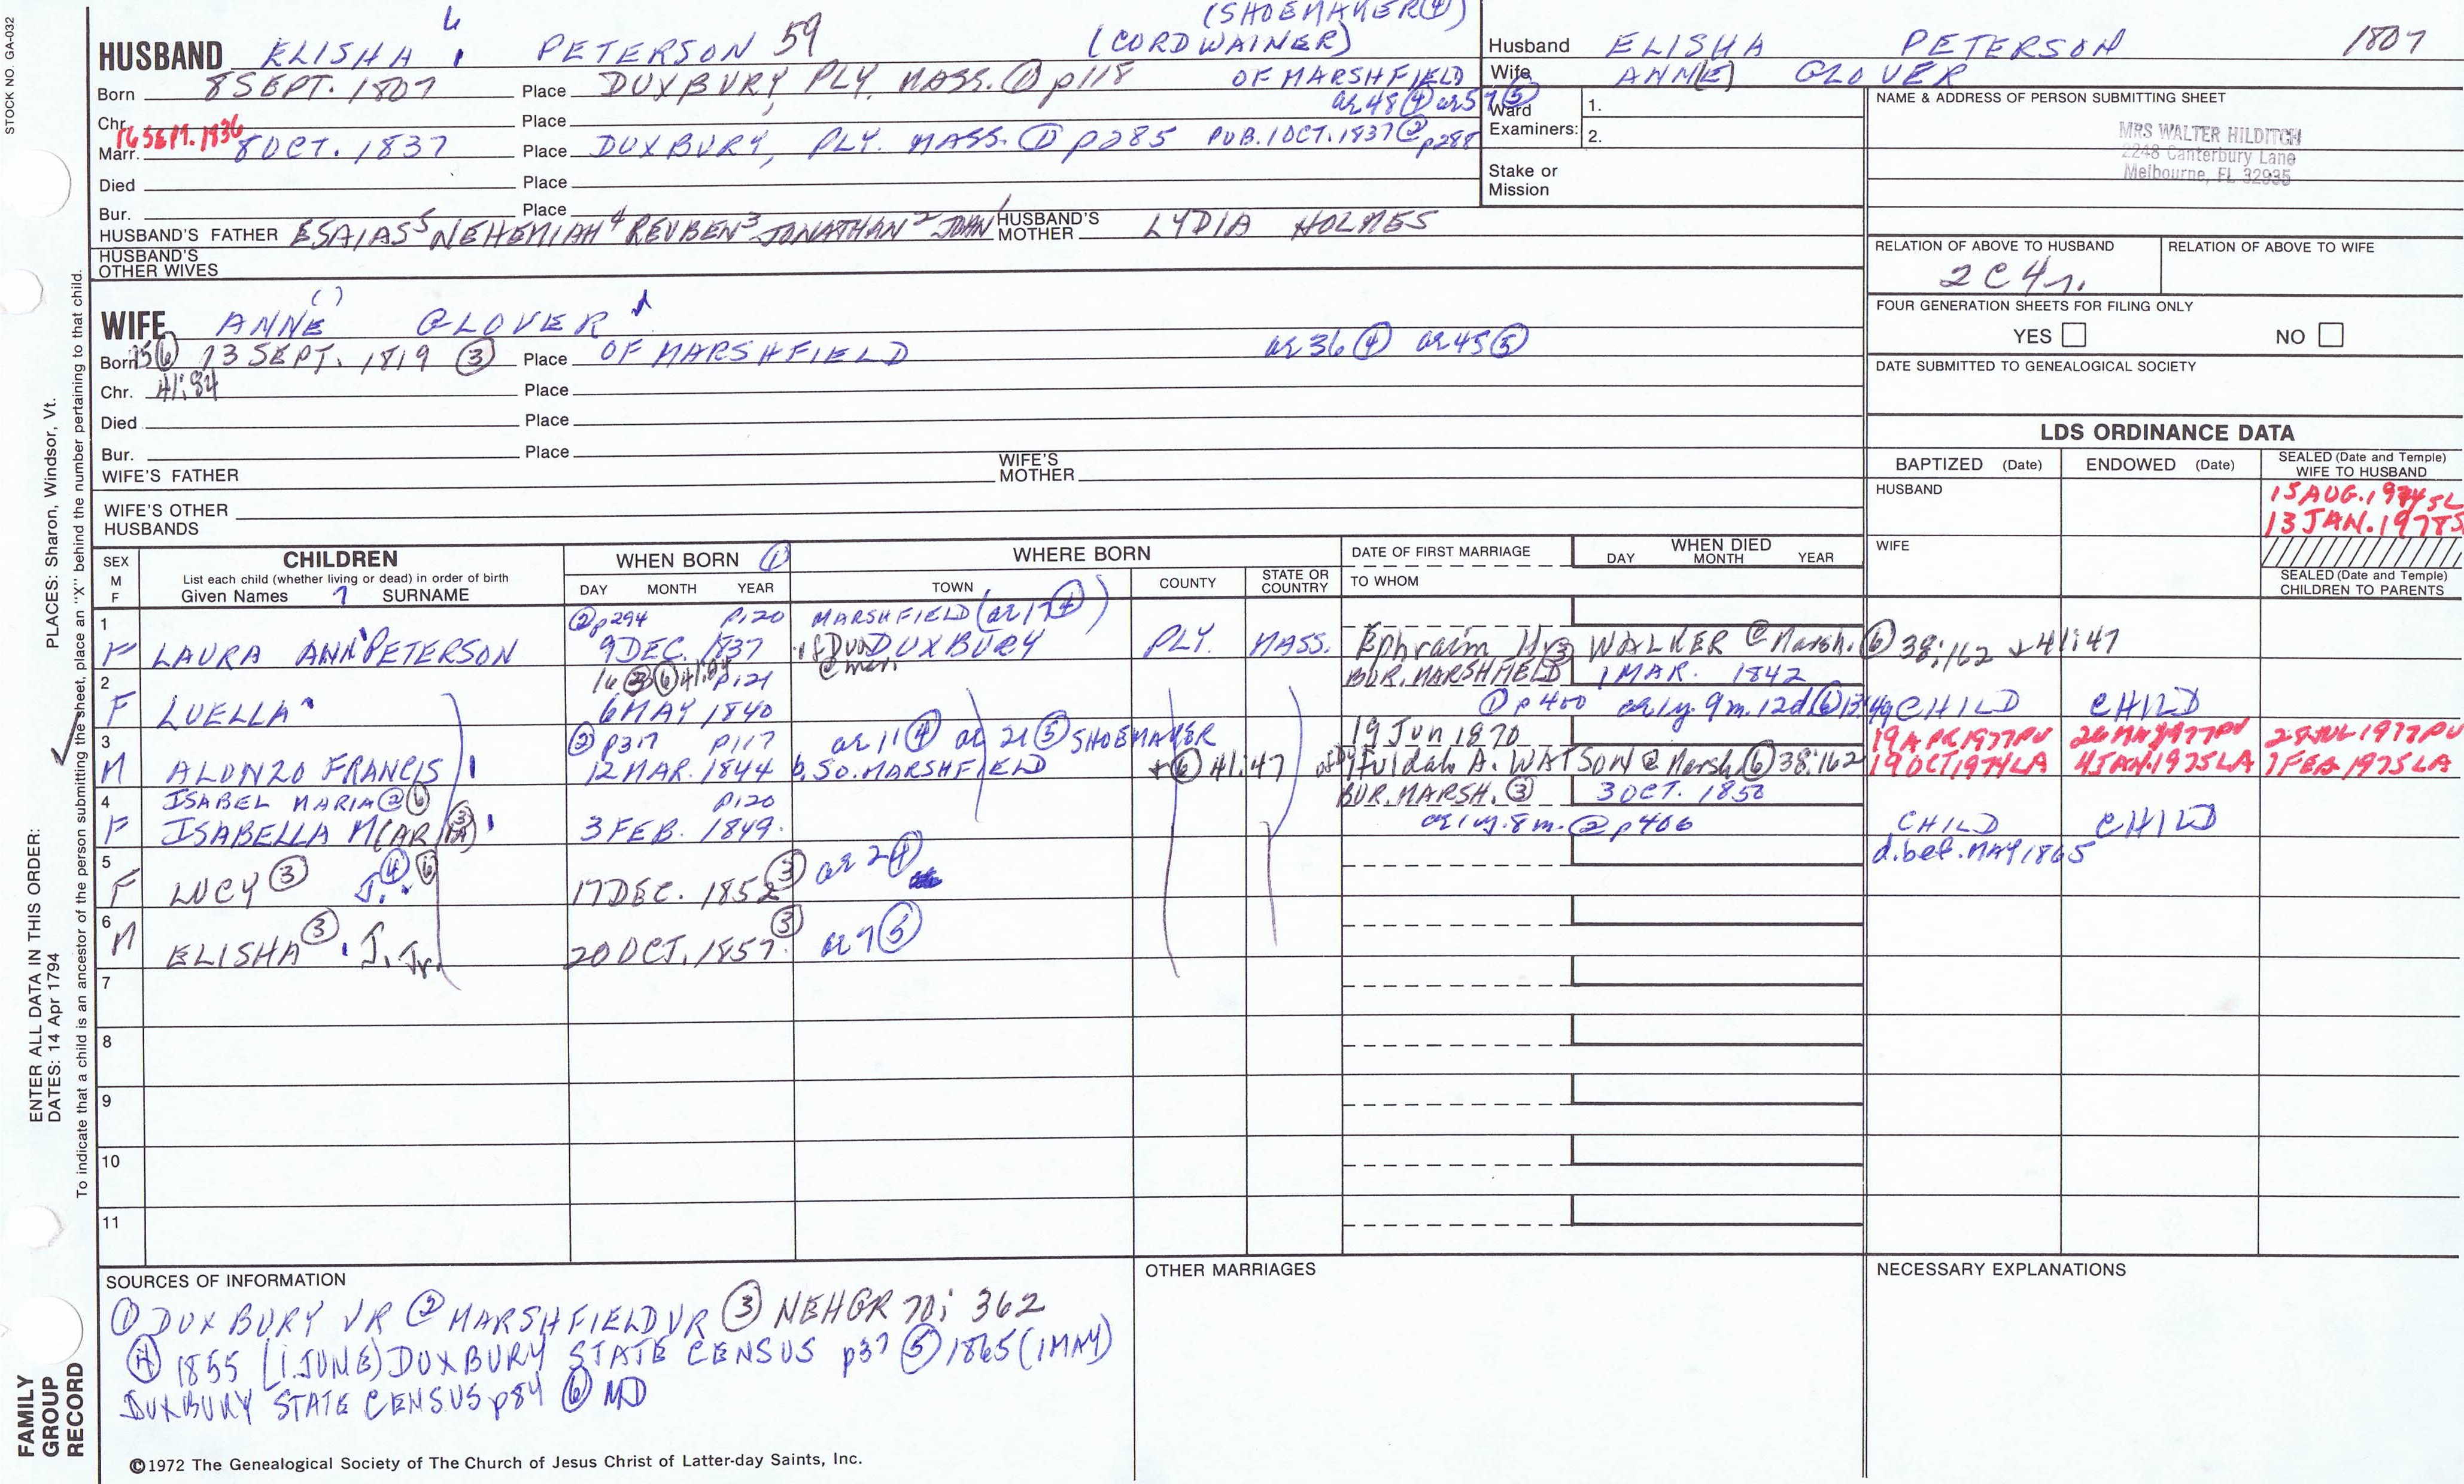 STOCK NO. GA-032
6
(SHOEMAKER ④)
HUSBAND ELISHA PETERSON 59 (CORDWAINER)
Born 8 SEPT. 1807 Place DUXBURY, PLY. MASS. ① p118 OF MARSHFIELD
ae 48 ④ ae 57 ⑤
Chr. Place
16 SEPT. 1936
Marr. 8 OCT. 1837 Place DUXBURY, PLY. MASS. ① p285 PUB. 1 OCT. 1837 ② p288
Died Place
Bur. Place
HUSBAND'S FATHER ESAIAS5 NEHEMIAH4 REUBEN3 JONATHAN2 JOHN1 HUSBAND'S MOTHER LYDIA HOLMES
HUSBAND'S OTHER WIVES
Husband ELISHA PETERSON 1807
Wife ANN(E) GLOVER
Ward 1.
Examiners: 2.
Stake or Mission
NAME & ADDRESS OF PERSON SUBMITTING SHEET
MRS WALTER HILDITCH
2248 Canterbury Lane
Melbourne, FL 32935
RELATION OF ABOVE TO HUSBAND RELATION OF ABOVE TO WIFE
2C4r.
FOUR GENERATION SHEETS FOR FILING ONLY
YES NO
DATE SUBMITTED TO GENEALOGICAL SOCIETY
( )
WIFE ANNE GLOVER
Born 15 ⑥ 13 SEPT. 1819 ③ Place OF MARSHFIELD ae 36 ④ ae 45 ⑤
Chr. 41:84 Place
Died Place
Bur. Place
WIFE'S FATHER WIFE'S MOTHER
WIFE'S OTHER HUSBANDS
LDS ORDINANCE DATA
BAPTIZED (Date) ENDOWED (Date) SEALED (Date and Temple) WIFE TO HUSBAND
HUSBAND 15 AUG. 1974 SL
13 JAN. 1978 S
WIFE
SEALED (Date and Temple) CHILDREN TO PARENTS
SEX M F CHILDREN WHEN BORN ① WHERE BORN DATE OF FIRST MARRIAGE WHEN DIED
List each child (whether living or dead) in order of birth
DAY MONTH YEAR
Given Names 7 SURNAME DAY MONTH YEAR TOWN COUNTY STATE OR COUNTRY TO WHOM
1 ② p294 p120 MARSHFIELD (ae 17 ④)
F LAURA ANN PETERSON 9 DEC. 1837 of DUX DUXBURY PLY. MASS. Ephraim H. ③ WALKER @ Marsh. ⑥ 38:162 + 41:47
@ marr.
2 16 ③ ⑥ 41:84 p121 BUR. MARSHFIELD 1 MAR. 1842
F LUELLA 6 MAY 1840 ① p400 ae 1y. 9m. 12d ⑥ CHILD CHILD
3 ② p317 p117 ae 11 ④ ae 21 ⑤ SHOEMAKER 19 Jun 1870 19 APR 1977 PV 26 MAY 1977 PV 28 JUL 1977 PV
M ALONZO FRANCIS 12 MAR. 1844 b. SO. MARSHFIELD + ⑥ 41:47 Huldah A. WATSON @ Marsh. ⑥ 38:162 19 OCT 1974 LA 4 JAN. 1975 LA 7 FEB 1975 LA
4 ISABEL MARIA ② ⑥ p120 BUR. MARSH. ③ 3 OCT. 1850
F ISABELLA M(ARIA) ③ 3 FEB. 1849 ae 1y. 8m. ② p406 CHILD CHILD
5 d. bef. MAY 1865
F LUCY ③ J. ④ ⑥ 17 DEC. 1852 ③ ae 2 ④
6
M ELISHA ③ J. Jr. 20 OCT. 1857 ③ ae 7 ⑤
7
8
9
10
11
SOURCES OF INFORMATION OTHER MARRIAGES NECESSARY EXPLANATIONS
① DUXBURY VR ② MARSHFIELD VR ③ NEHGR 70; 362
④ 1855 (1 JUNE) DUXBURY STATE CENSUS p37 ⑤ 1865 (1 MAY)
DUXBURY STATE CENSUS p84 ⑥ MD
©1972 The Genealogical Society of The Church of Jesus Christ of Latter-day Saints, Inc.
FAMILY GROUP RECORD
ENTER ALL DATA IN THIS ORDER: PLACES: Sharon, Windsor, Vt.
DATES: 14 Apr 1794
To indicate that a child is an ancestor of the person submitting the sheet, place an "X" behind the number pertaining to that child.